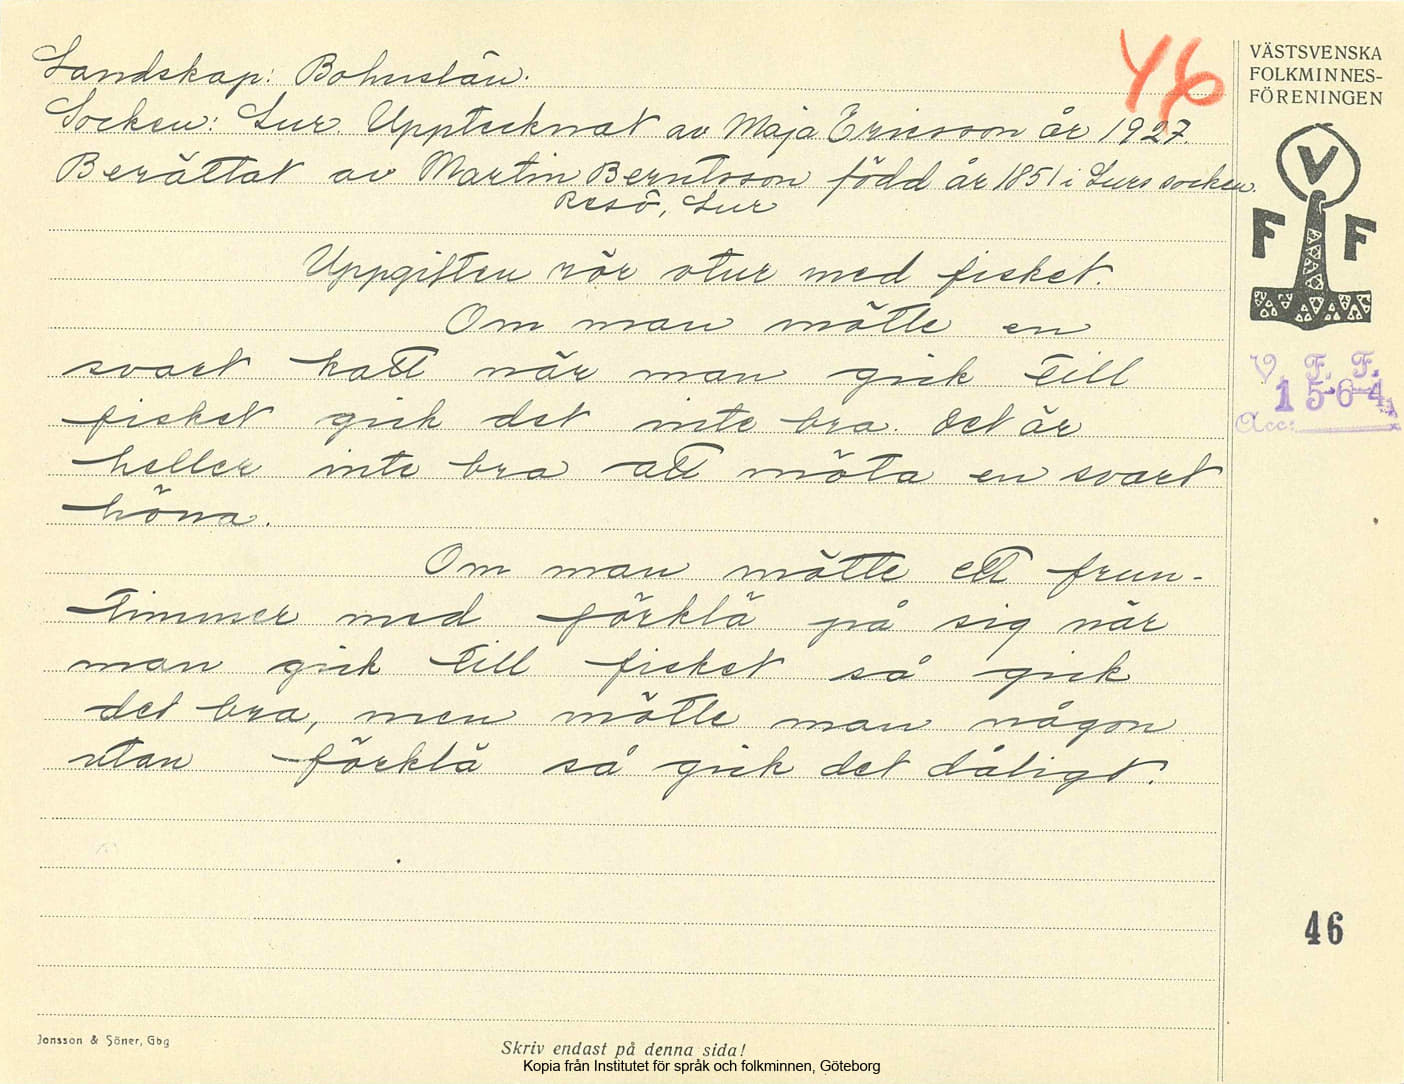 Landskap: Bohuslän.
Socken: Lur. Upptecknat av Maja Ericsson år 1927.
Berättat av Martin Berntsson född år 1851 i Lurs socken.
Resö, Lur
Uppgiften rör otur med fisket.
Om man mötte en
svart katt när man gick till
fisket gick det inte bra. Det är
heller inte bra att möta en svart
höna.
Om man mötte ett frun-
timmer med förklä på sig när
man gick till fisket så gick
det bra, men mötte man någon
utan förklä så gick det dåligt.
46
VÄSTSVENSKA
FOLKMINNES-
FÖRENINGEN
V
F F
V. F. F.
1564
Acc:
46
Jonsson & Söner, Gbg
Skriv endast på denna sida!
Kopia från Institutet för språk och folkminnen, Göteborg